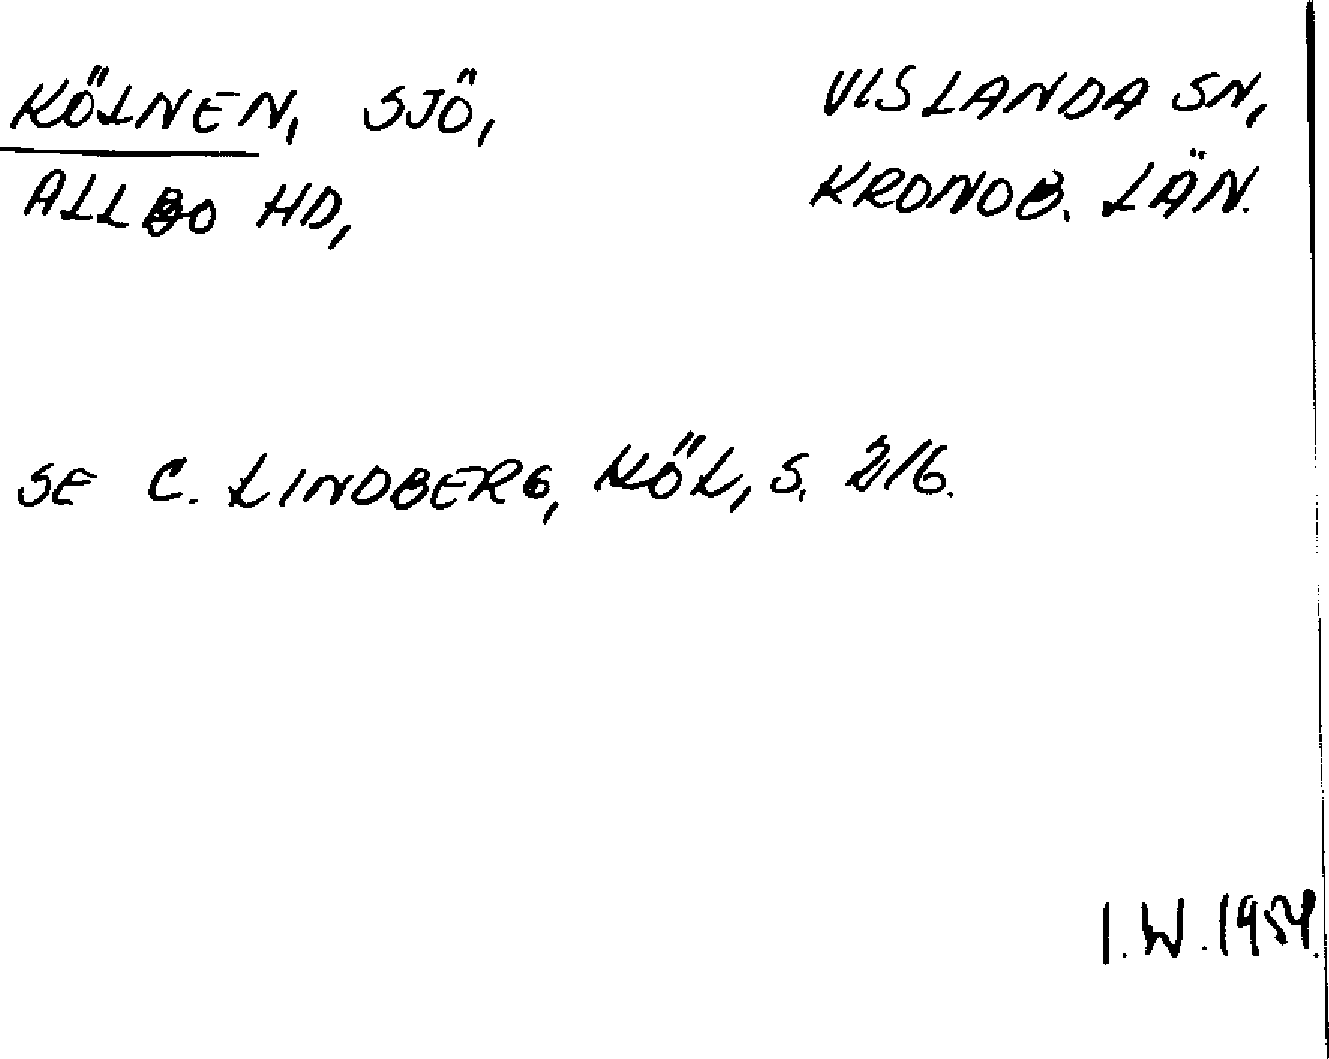 KÖLNEN, SJÖ, VISLANDA SN,
ALLBO HD, KRONOB. LÄN.
SE C. LINDBERG, KÖL, S. 216.
I.W. 1954.